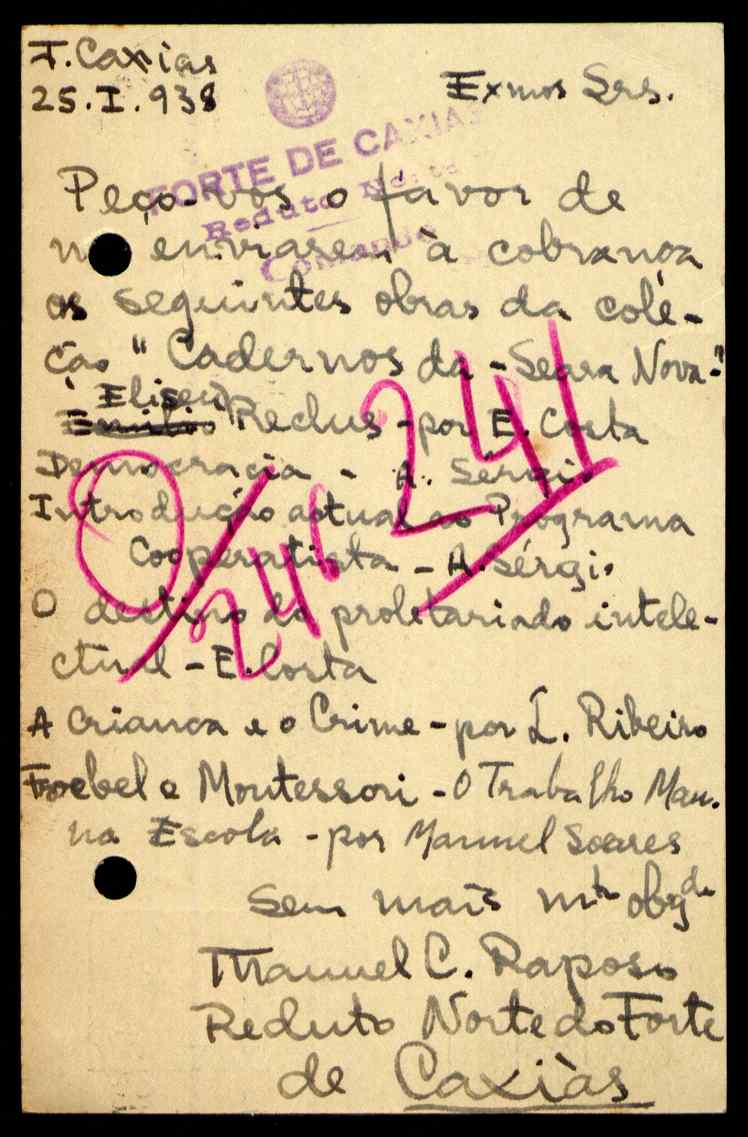 F. Caxias
25.I.938
Exmos Srs.
FORTE DE CAXIAS
Reduto Norte
Comando
Peço-vos o favor de
me enviarem à cobrança
os seguintes obras da cole-
ção "Cadernos da - Seara Nova-"
Eliseu
Reclus - por E. Costa
Democracia - A. Sérgio
Introdução actual ao Programa
Cooperatista - A. Sérgio
O destino do proletariado intele-
ctual - E. Costa
A Criança e o Crime - por L. Ribeiro
Froebel e Montessori - O Trabalho Man.
na Escola - por Manuel Soares
Sem mais mto obrgdo
Manuel C. Raposo
Reduto Norte do Forte
de Caxias